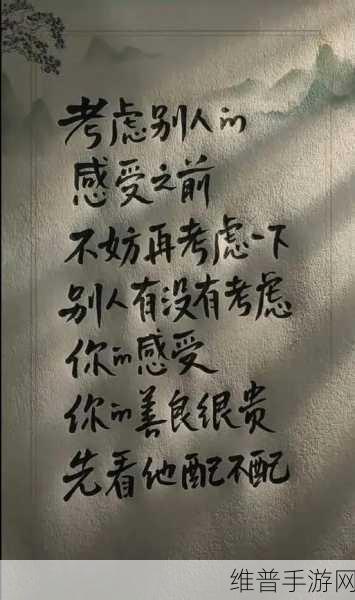 考虑别人的
感受之前
不妨再考虑一下
别人有没有考虑
你的感受
你的善良很贵
先看他配不配
维普手游网